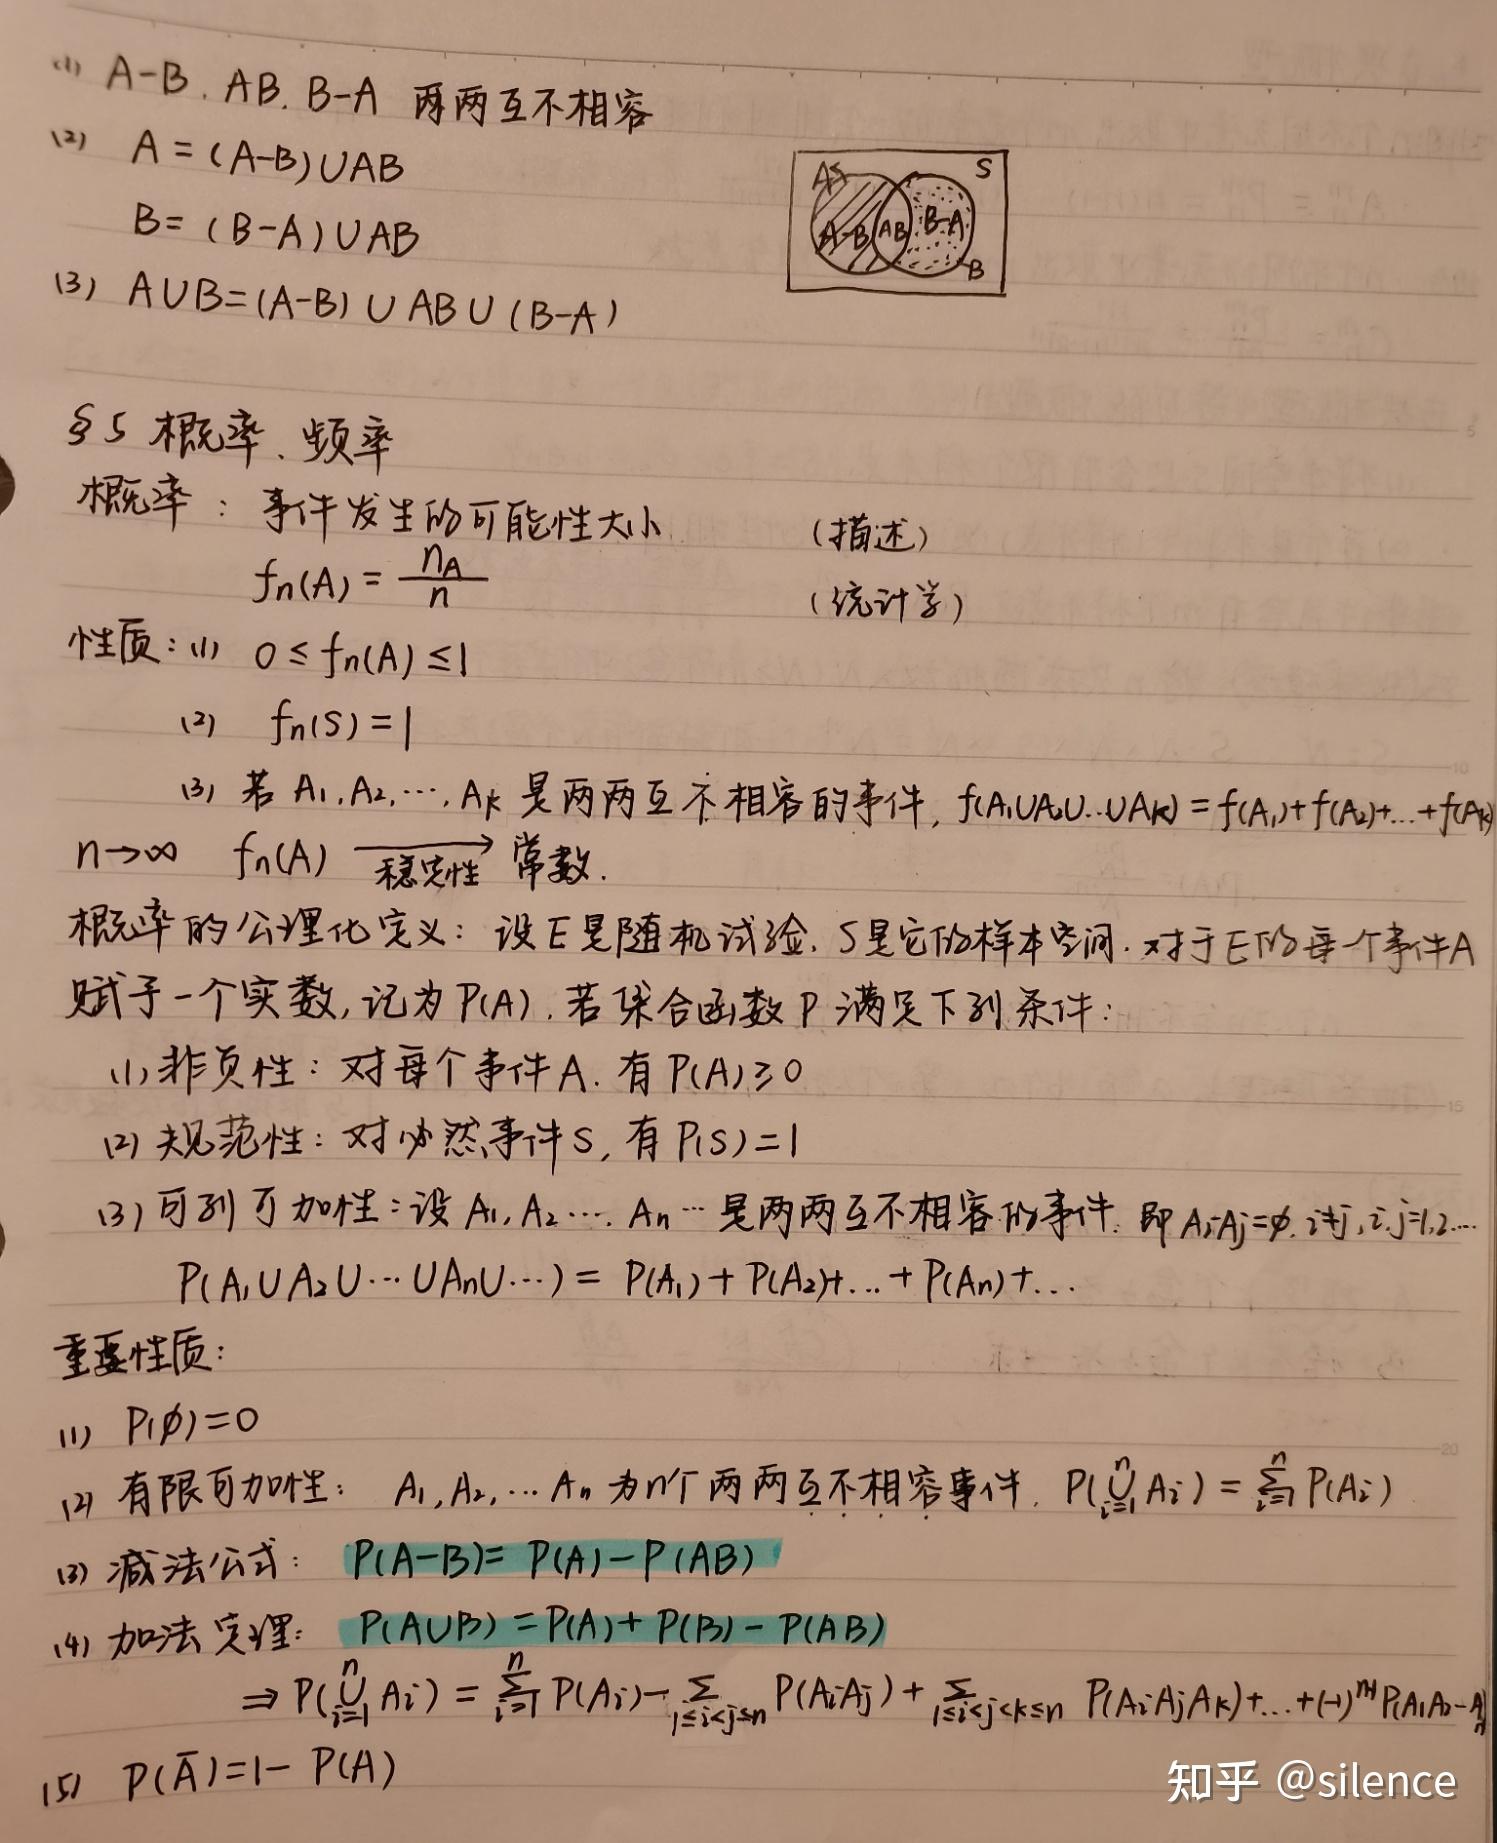 (1) A-B. AB. B-A 两两互不相容
(2) A=(A-B)∪AB
B=(B-A)∪AB
(3) A∪B=(A-B)∪AB∪(B-A)
A
S
A-B
AB
B-A
B
§5 概率、频率
概率：事件发生的可能性大小 (描述)
fn(A) = nA/n (统计学)
性质：(1) 0≤fn(A)≤1
(2) fn(S)=1
(3) 若 A1,A2,…,Ak 是两两互不相容的事件, f(A1∪A2∪…∪Ak)=f(A1)+f(A2)+…+f(Ak)
n→∞ fn(A) 稳定性→ 常数.
概率的公理化定义：设E是随机试验. S是它的样本空间. 对于E的每一个事件A
赋予一个实数, 记为P(A). 若集合函数P满足下列条件：
(1) 非负性：对每个事件A. 有P(A)≥0
(2) 规范性：对必然事件S, 有P(S)=1
(3) 可列可加性：设A1,A2…,An…是两两互不相容的事件. 即AiAj=∅. i≠j, i.j=1,2…
P(A1∪A2∪…∪An∪…)= P(A1)+P(A2)+…+P(An)+…
重要性质：
(1) P(∅)=0
(2) 有限可加性： A1,A2,…An 为n个两两互不相容事件. P(⋃i=1n Ai)=∑i=1n P(Ai)
(3) 减法公式： P(A-B)= P(A)-P(AB)
(4) 加法定理： P(A∪B)=P(A)+P(B)-P(AB)
⇒ P(⋃i=1n Ai)=∑i=1n P(Ai)-∑1≤i<j≤n P(AiAj)+∑1≤i<j<k≤n P(AiAjAk)+…+(-1)n+1 P(A1A2-An)
(5) P(Ā)=1- P(A)
知乎 @silence